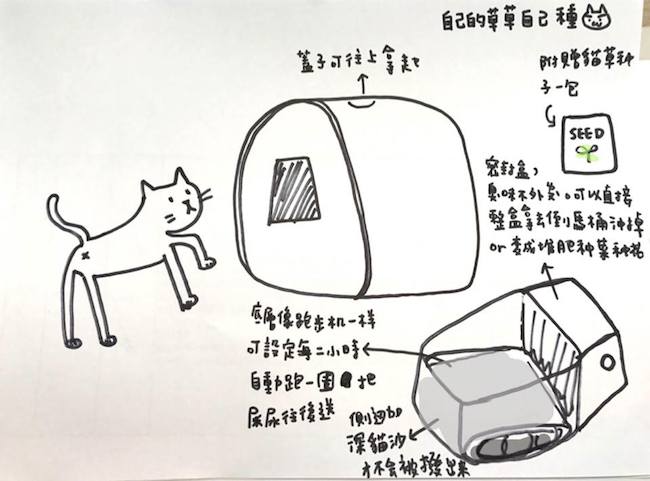 自己的草草自己種
蓋子可往上拿起
附贈貓草種
子一包
SEED
密封盒,
臭味不外氣。可以直接
整盒拿去倒馬桶沖掉
or 變成堆肥种菓种花
底層像跑步机一样
可設定每二小時
自動跑一圈 把
屎尿往後送
側边加
深貓沙
才不會被撥出來